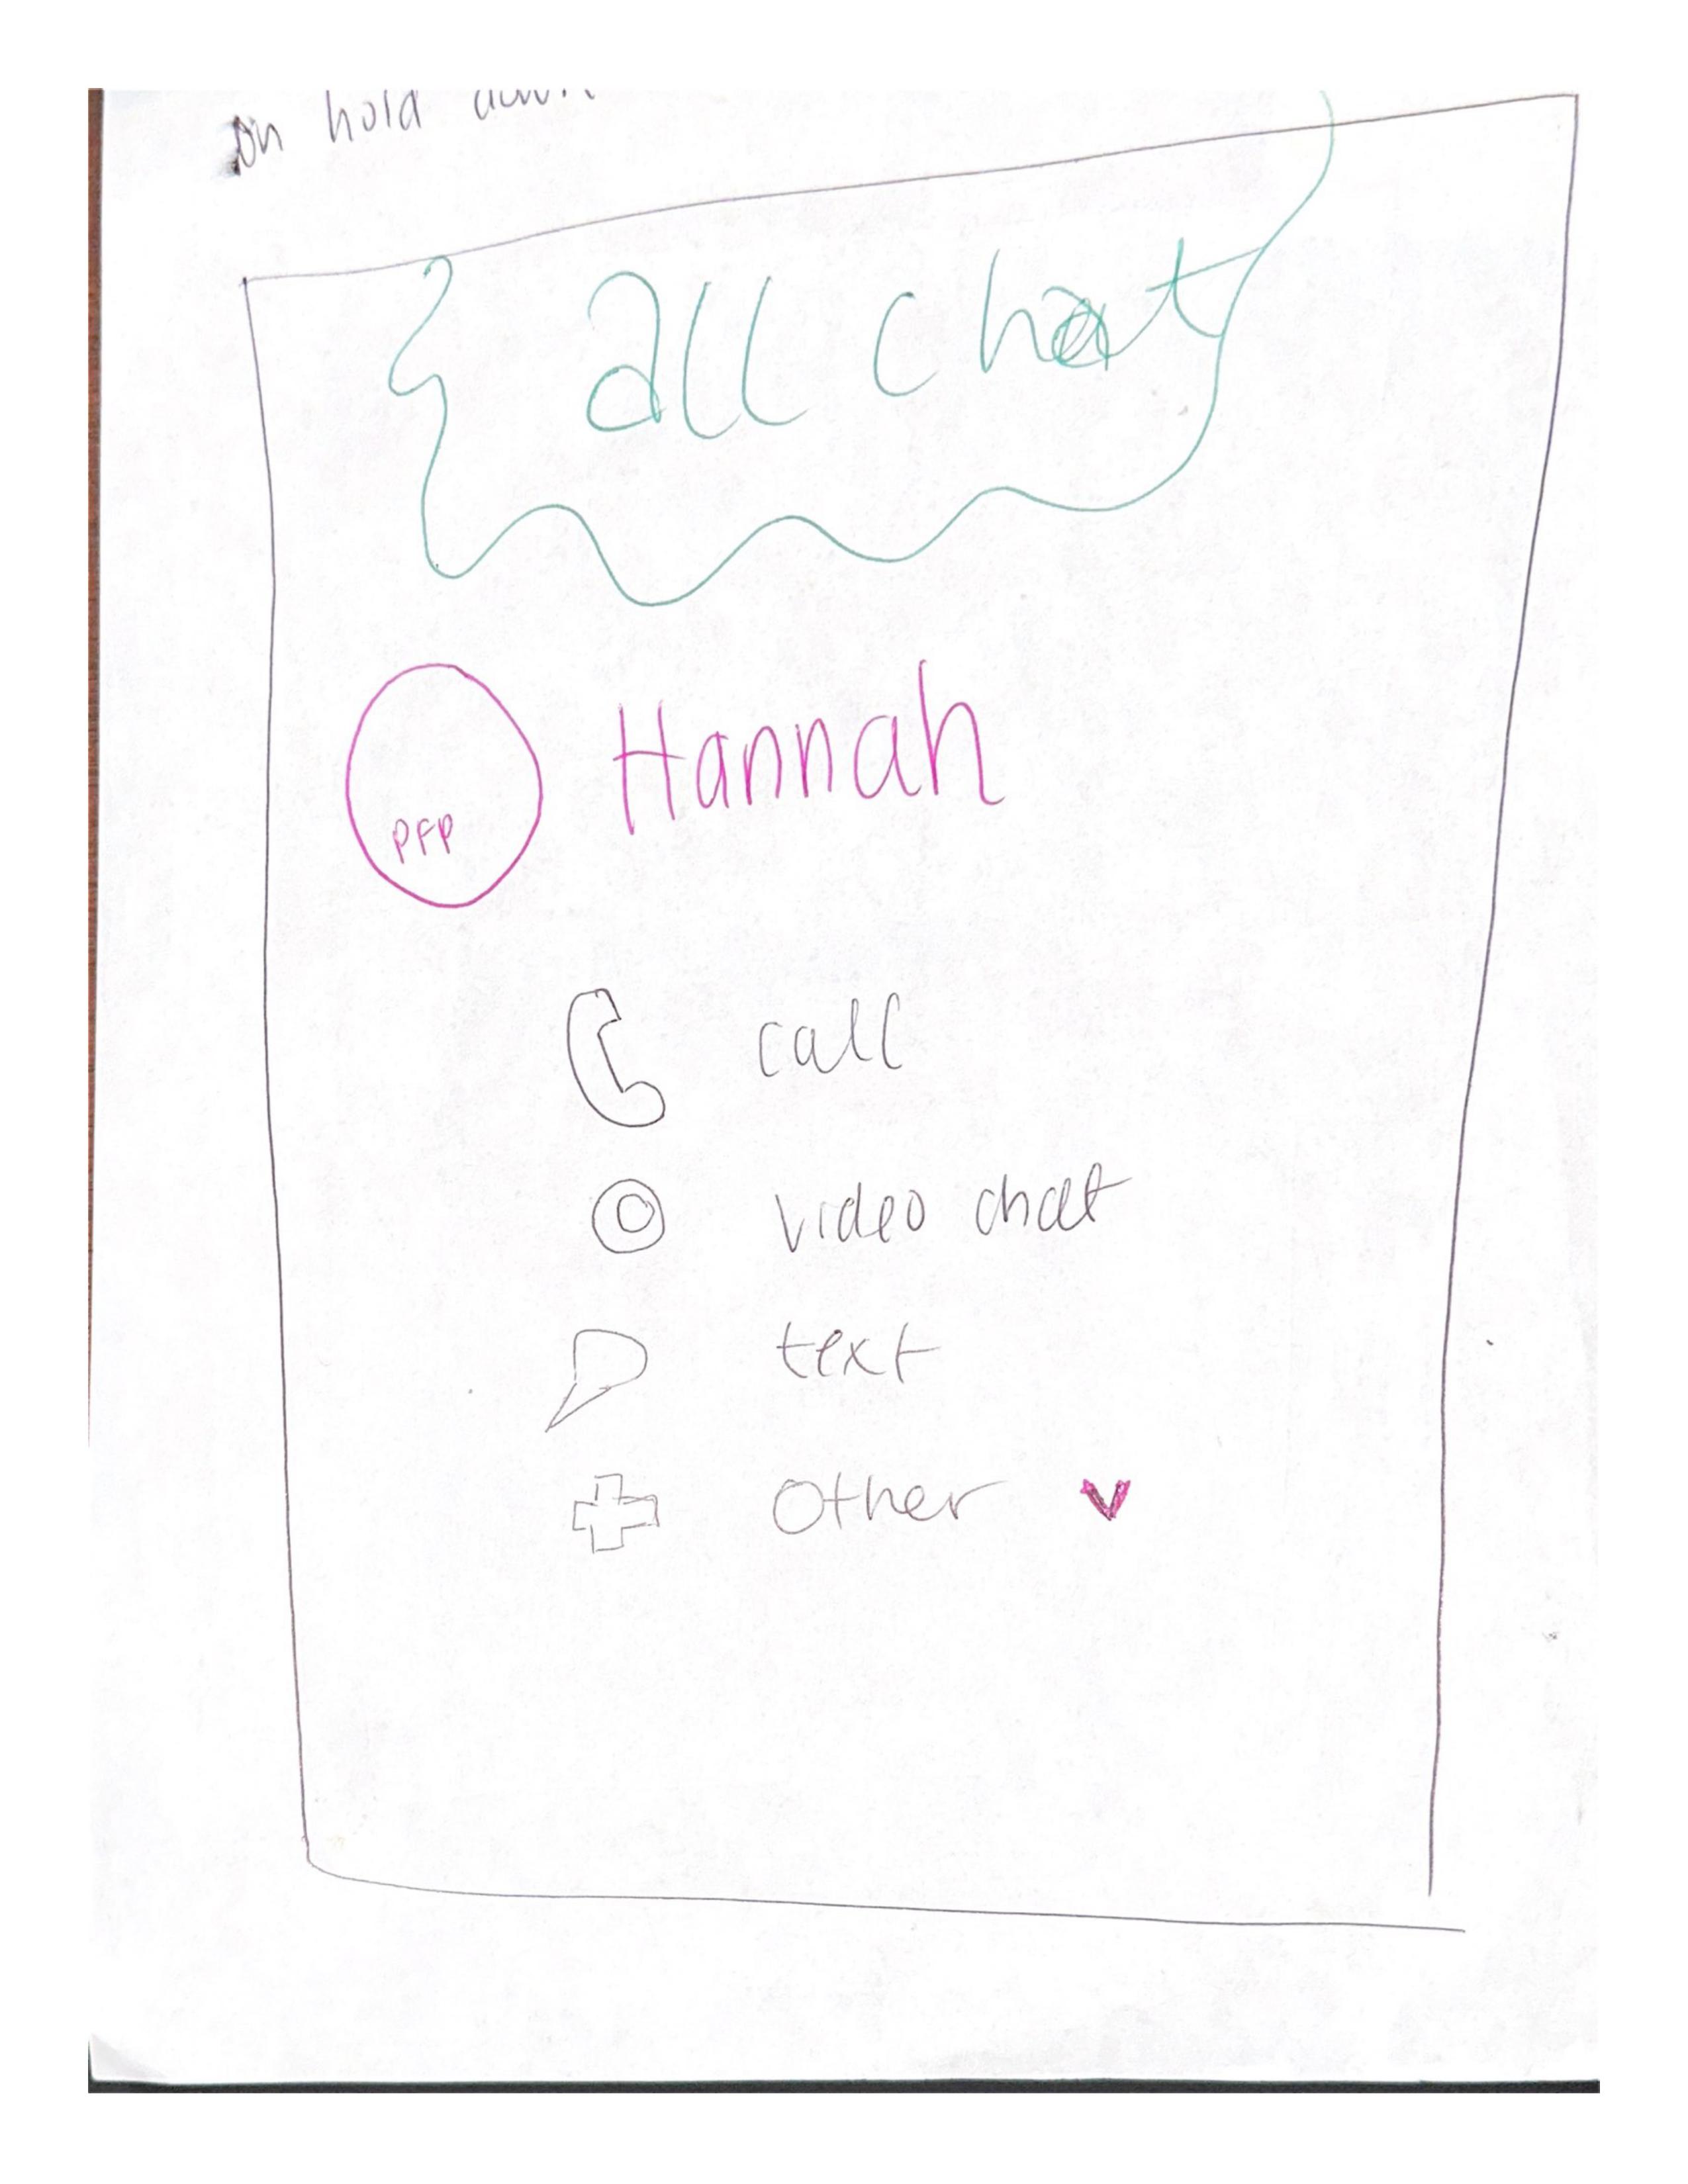 on hold down
all chat
PFP
Hannah
call
video chat
text
Other